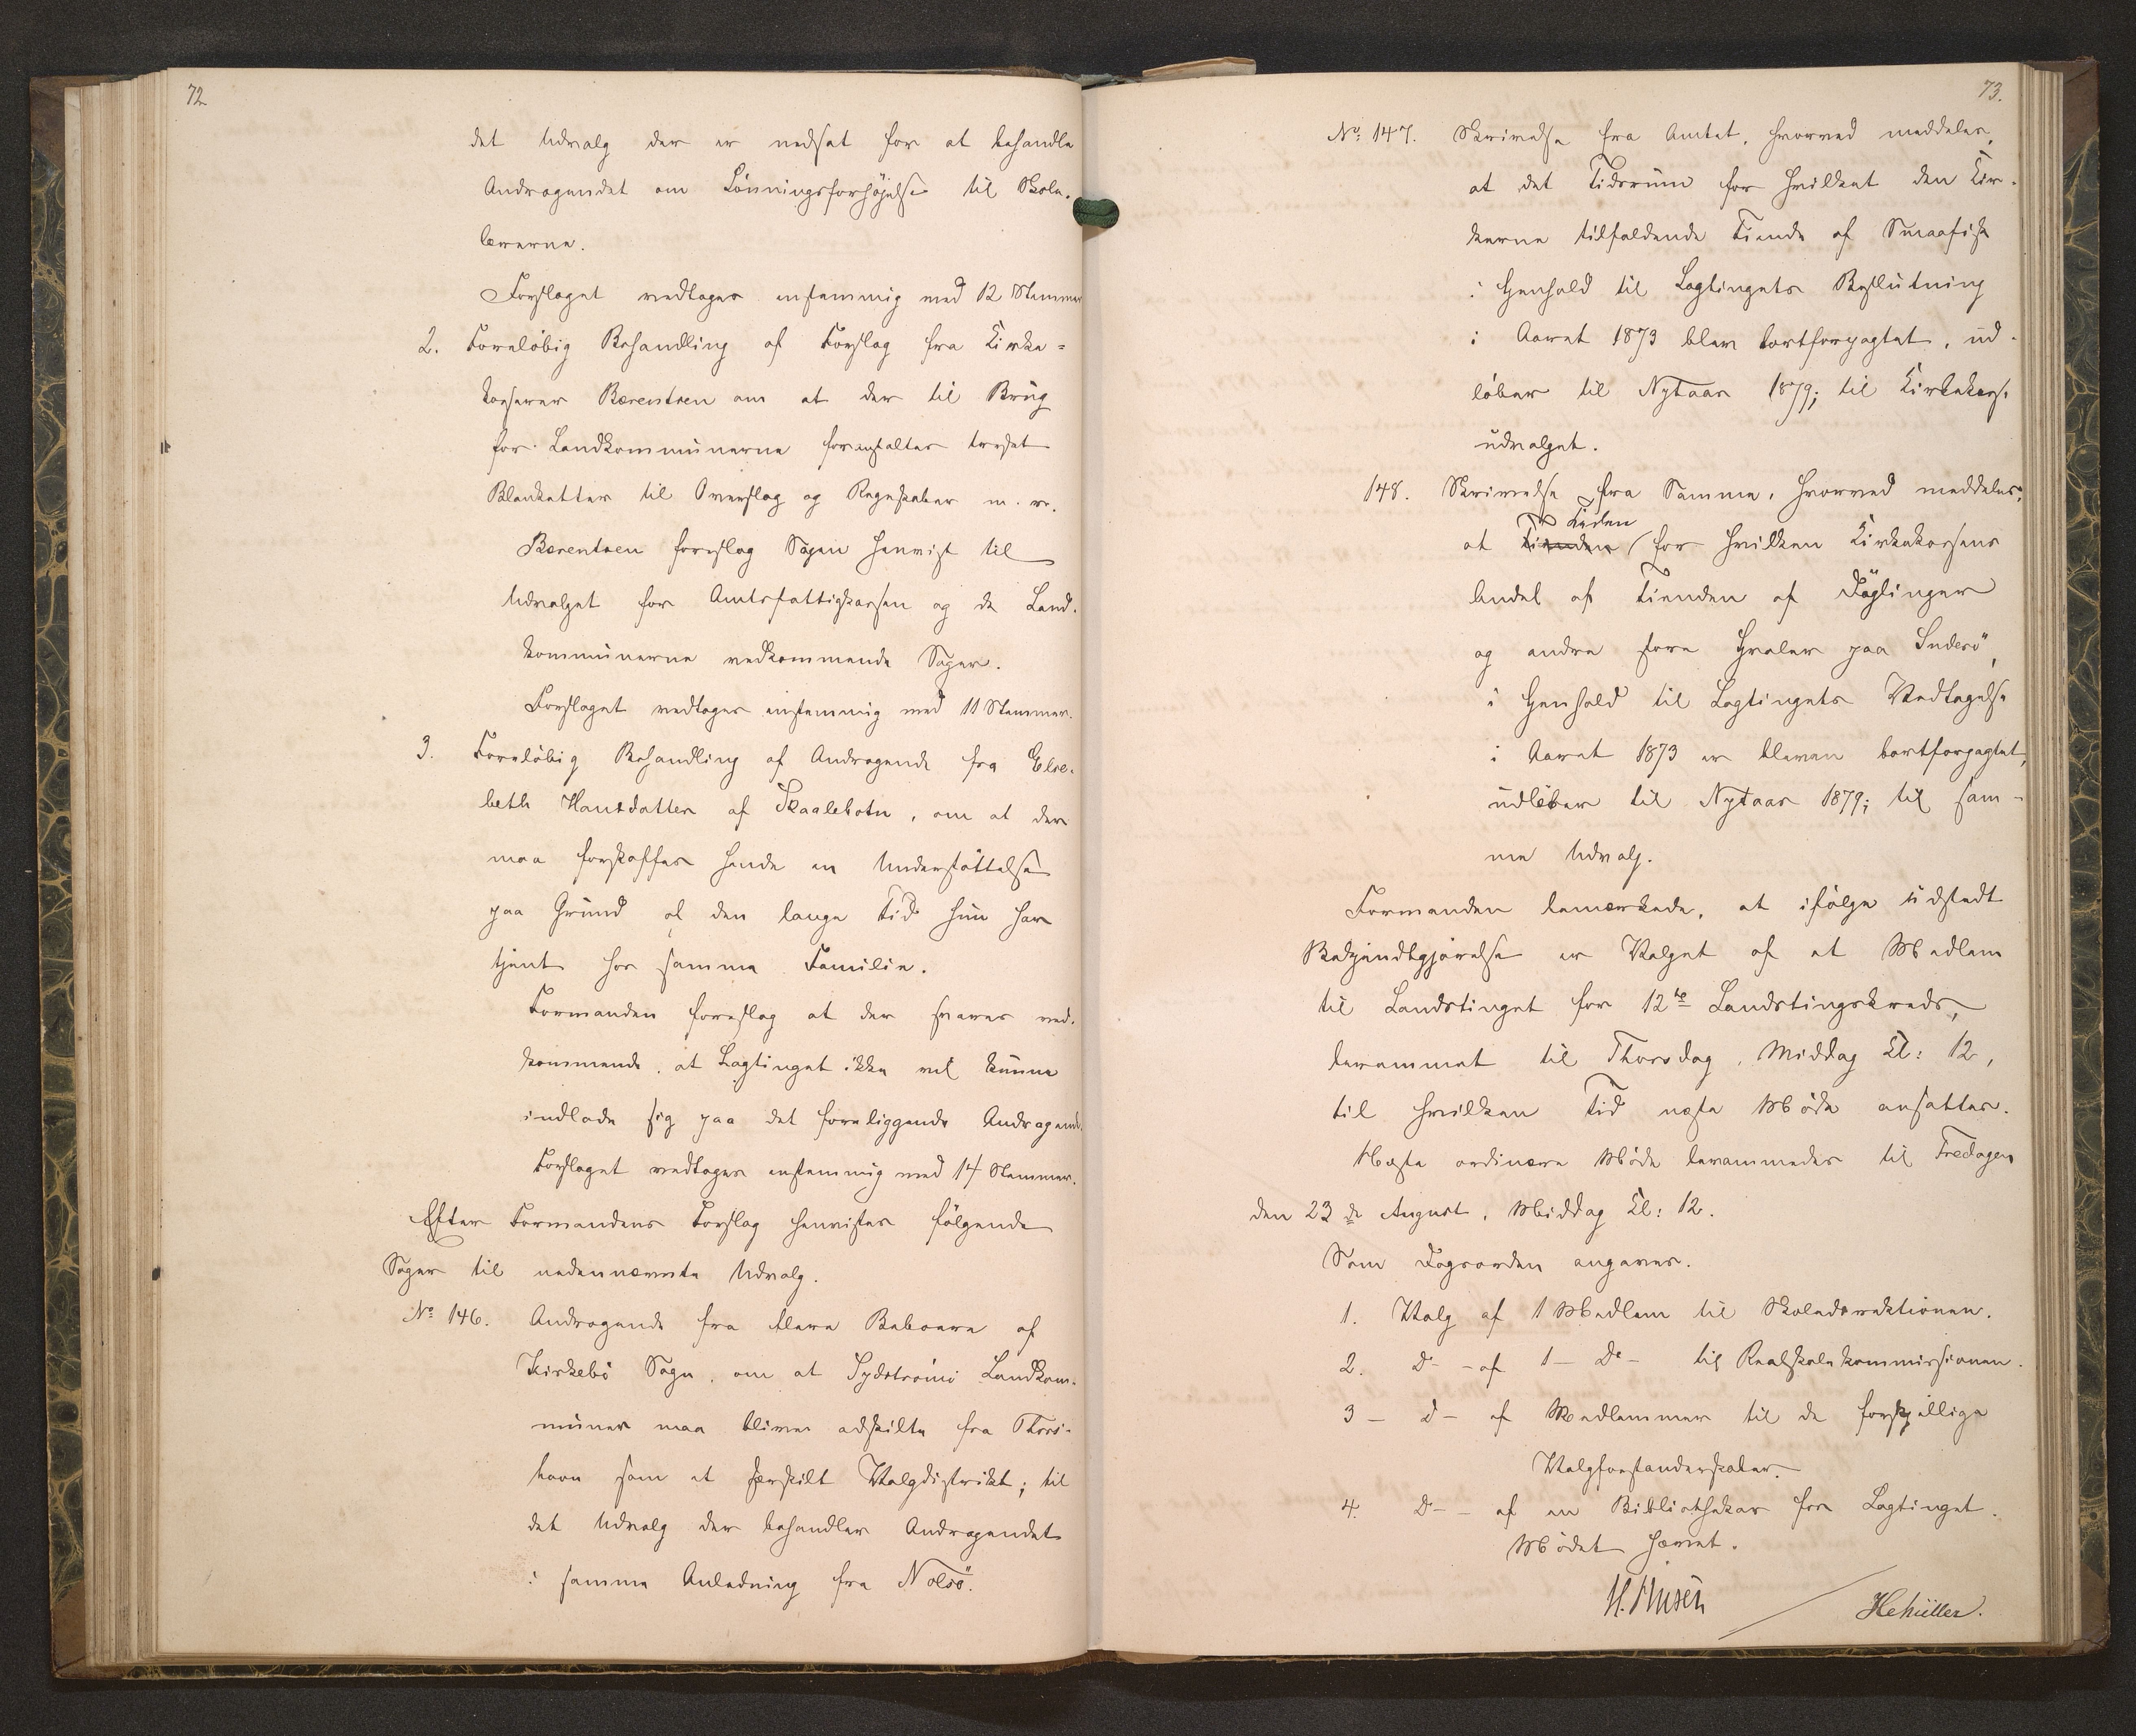 72
det Udvalg der er nedsat for at behandle
Andragendet om Lønningsforhøjelse til Skole-
lærerne.
Forslaget vedtages enstemmig med 12 Stemmer
2. Foreløbig Behandling af Forslag fra Kirke-
kasserer Bærentsen om at der til Brug
for Landkommunerne foranstaltes trykt
Blanketter til Overslag og Regnskaber m. v.
Bærentsen foreslog Sagen henvist til
Udvalget for Amtsfattigkassen og de Land-
kommunerne vedkommende Sager.
Forslaget vedtages enstemmig med 11 Stemmer.
3. Foreløbig Behandling af Andragende fra Else-
beth Hansdatter af Skaalebotn, om at der
maa forskaffes hende en Understøttelse
paa Grund af den lange Tid hun har
tjent hos samme Familie.
Formanden foreslog at der svares ved-
kommende, at Lagtinget ikke vil kunne
indlade sig paa det foreliggende Andragend.
Forslaget vedtages enstemmig med 14 Stemmer.
Efter Formandens Forslag henvistes følgende
Sager til nedennævnte Udvalg.
No 146. Andragende fra flere Beboere af
Kirkebø Sogn, om at Sydstrømø Landkom-
muner maa blive adskilte fra Thors-
havn som et særskilt Valgdistrikt; til
det Udvalg der behandler Andragendet
i samme Anledning fra Nolsø.
73.
No: 147. Skrivelse fra Amtet, hvorved meddeles,
at det Tidsrum for hvilket den Kir-
kerne tilfaldende Tiende af Smaafisk
i Henhold til Lagtingets Beslutning
i Aaret 1873 blev bortforpagtet, ud-
løber til Nytaar 1879; til Kirkekasse-
udvalget.
148. Skrivelse fra Samme, hvorved meddeles,
Tiden
at Tienden for hvilken Kirkekassens
Andel af Tienden af Døglinger
og andre store Hvaler paa Suderø,
i Henhold til Lagtingets Vedtagelse
i Aaret 1873 er bleven bortforpagtet,
udløber til Nytaar 1879; til sam-
me Udvalg.
Formanden bemærkede, at ifølge udstedt
Bekjendtgjørelse er Valget af et Medlem
til Landstinget for 12te Landstingskreds,
berammet til Thorsdag, Middag Kl: 12,
til hvilken Tid næste Møde ansattes.
Næste ordinære Møde berammedes til Fredagen
den 23de August, Middag Kl: 12.
Som Dagsorden angaves.
1. Valg af 1 Medlem til Skoledirektionen.
2. Do - af 1 - Do - til Realskolekommissionen.
3 - D - af Medlemmer til de forskjellige
Valgforstanderskaber.
4. D - - af en Bibliothekar for Lagtinget.
Mødet hævet.